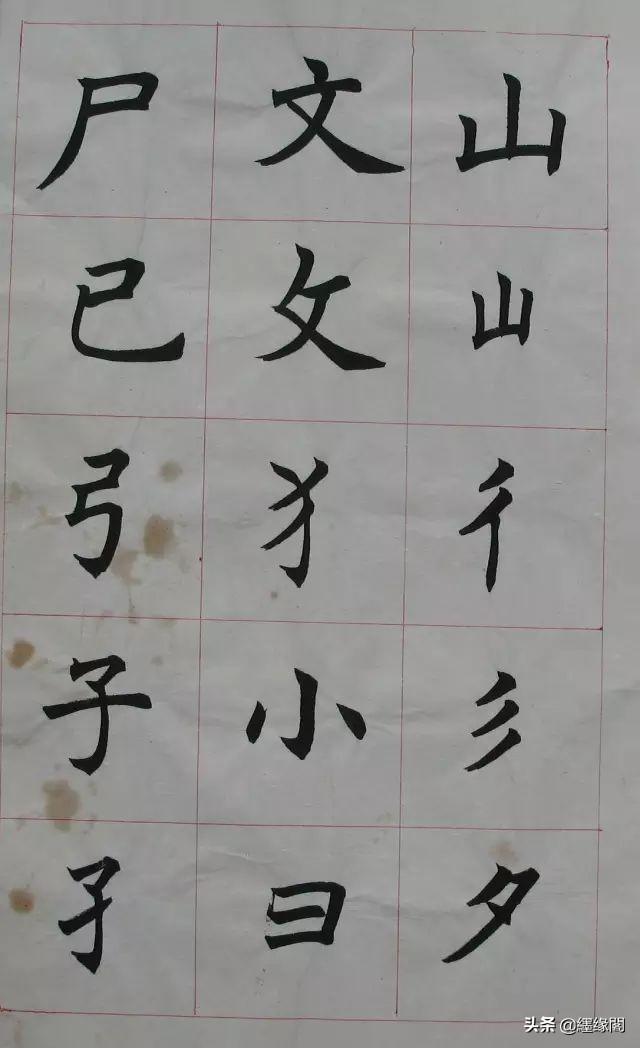 山山彳彡夕
文攵犭小曰
尸已弓子孑
头条 @纆缘閣